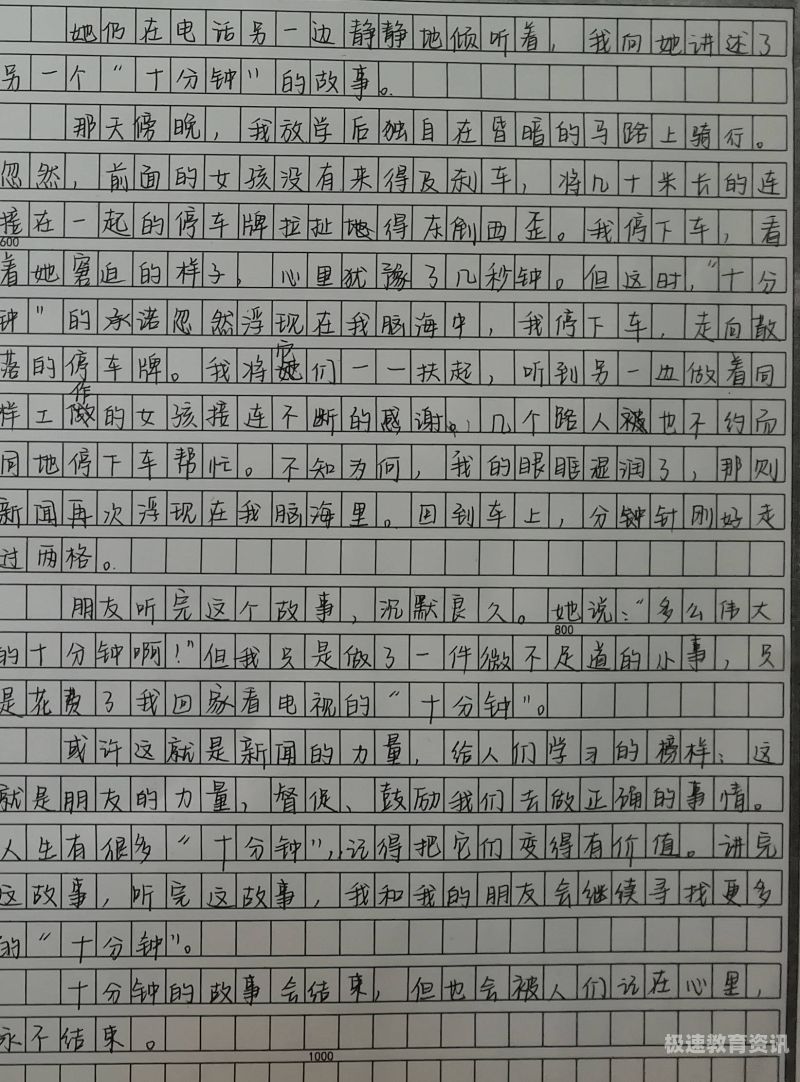 她仍在电话另一边静静地倾听着，我向她讲述了
另一个“十分钟”的故事。
那天傍晚，我放学后独自在昏暗的马路上骑行。
忽然，前面的女孩没有来得及刹车，将几十米长的连
接在一起的停车牌拉扯地得东倒西歪。我停下车，看
600
着她窘迫的样子，心里犹豫了几秒钟。但这时，“十分
钟”的承诺忽然浮现在我脑海中，我停下车，走向散
落的停车牌。我将它们一一扶起，听到另一边做着同
样工作的女孩接连不断的感谢。几个路人被也不约而
同地停下车帮忙。不知为何，我的眼眶湿润了，那则
新闻再次浮现在我脑海里。回到车上，分钟针刚好走
过两格。
朋友听完这个故事，沉默良久。她说：“多么伟大
800
的十分钟啊！”但我只是做了一件微不足道的小事，只
是花费了我回家看电视的“十分钟”。
或许这就是新闻的力量，给人们学习的榜样；这
就是朋友的力量，督促、鼓励我们去做正确的事情。
人生有很多“十分钟”，记得把它们变得有价值。讲完
这故事，听完这故事，我和我的朋友会继续寻找更多
的“十分钟”。
十分钟的故事会结束，但也会被人们记在心里，
永不结束。
1000
极速教育资讯